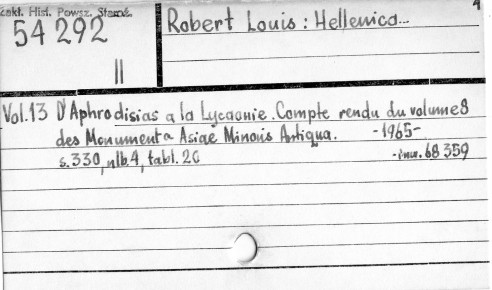 Zakł. Hist. Powsz. Staroż.
54 292
II
Robert Louis : Hellenica...
4
Vol.13 D'Aphrodisias a la Lycaonie. Compte rendu du volume 8
des Monumenta Asiae Minoris Antiqua. -1965-
s.330, nlb.4, tabl. 26
-inw. 68 359